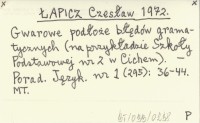 ŁAPICZ Czesław 1972.
Gwarowe podłoże błędów grama-
tycznych (na przykładzie Szkoły
Podstawowej nr 2 w Cichem). —
Porad. Język. nr 1 (295): 36-44.
MT.
P